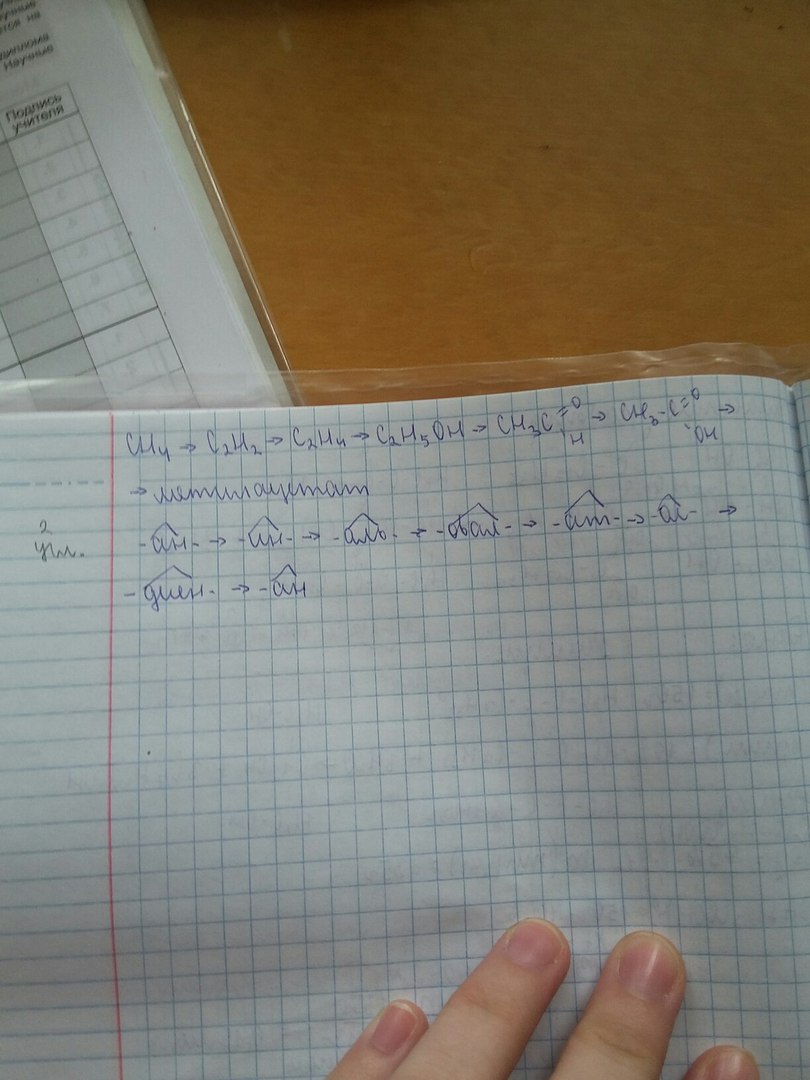 диплома
Научные
Подпись
учителя
CH₄ → C₂H₂ → C₂H₄ → C₂H₅OH → CH₃C=O H → CH₃-C=O OH →
→ метилацетат
2
-ан- → -ин- → -аль- → -овал- → -ат- → -ол- →
-диен- → -ан